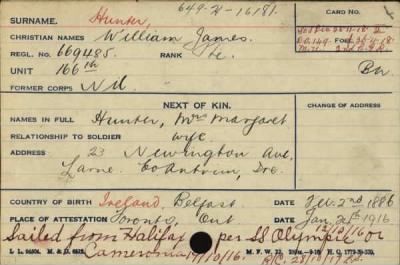 649-H-16181.
SURNAME. Hunter,
CARD NO.
CHRISTIAN NAMES William James.
REGL. NO. 669485. RANK Pte.
UNIT 166th Bn.
FORMER CORPS Nil
NEXT OF KIN. CHANGE OF ADDRESS
NAMES IN FULL Hunter, Mrs Margaret
RELATIONSHIP TO SOLDIER wife
ADDRESS 23 Newington Ave,
Larne. Co Antrim, Ire.
COUNTRY OF BIRTH Ireland, Belfast DATE Feb. 2nd 1886
PLACE OF ATTESTATION Toronto, Ont. DATE Jan. 21st 1916.
Sailed from Halifax per SS Olympic or 12/10/16
Cameronia 17/10/16.